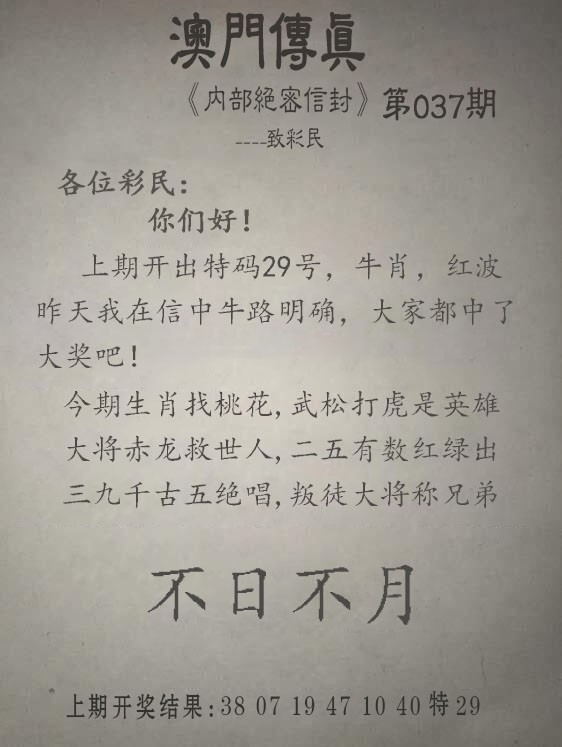 澳門傳眞
《内部絕密信封》第037期
----致彩民
各位彩民:
你们好!
上期开出特码29号, 牛肖, 红波
昨天我在信中牛路明确, 大家都中了
大奖吧!
今期生肖找桃花, 武松打虎是英雄
大将赤龙救世人, 二五有数红绿出
三九千古五绝唱, 叛徒大将称兄弟
不日不月
上期开奖结果: 38 07 19 47 10 40 特 29